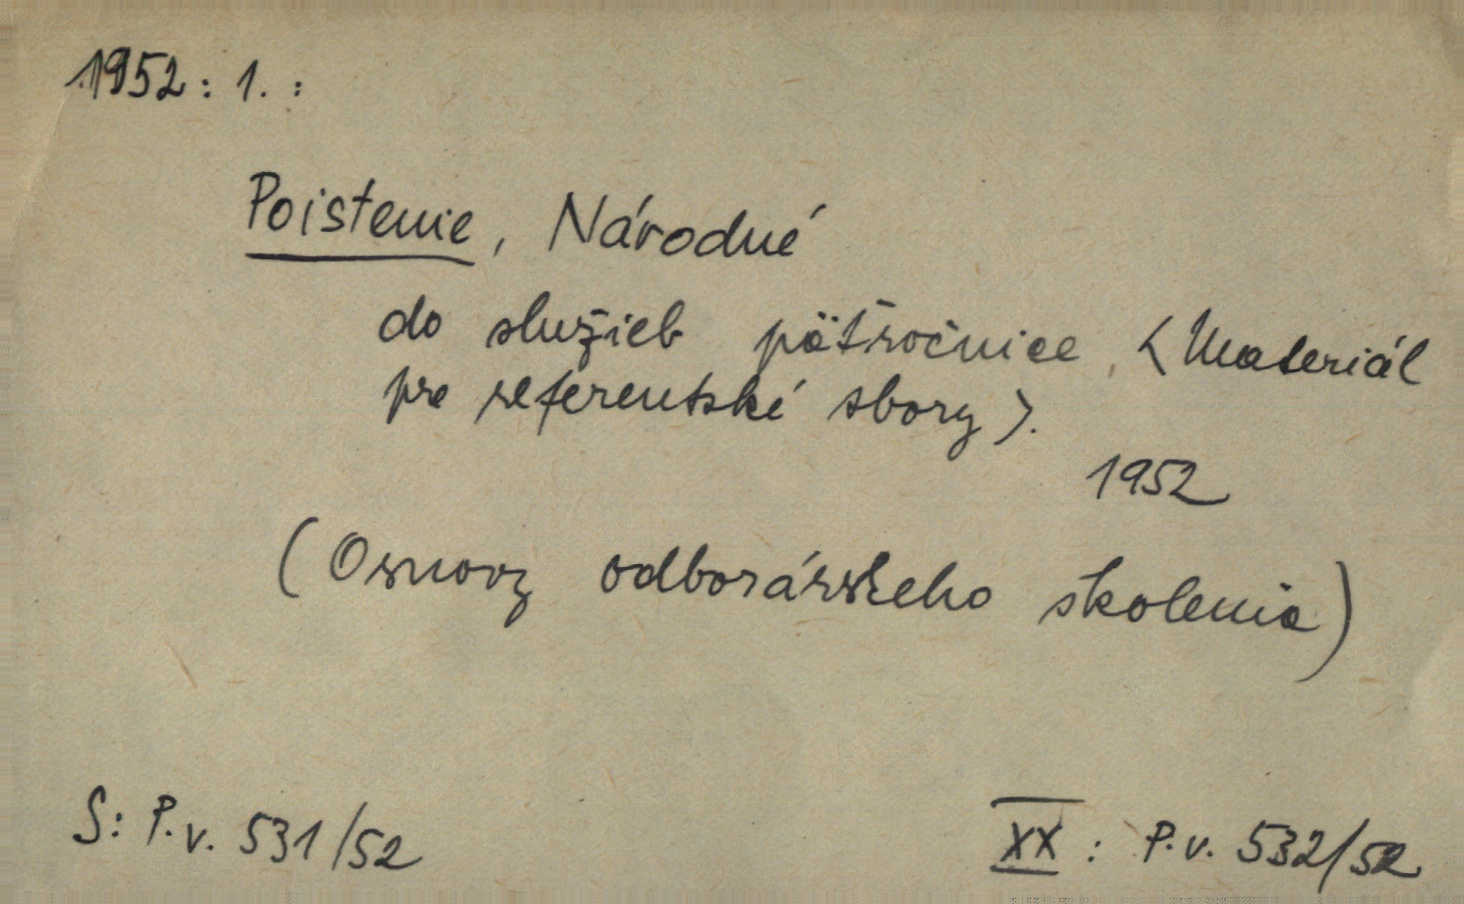 1952: 1. :
Poistenie, Národné
do služieb päťročnice. <Materiál
pre referentské sbory>.
1952
(Osnovy odborárskeho školenia)
S: P.v. 531/52
XX : P.v. 532/52